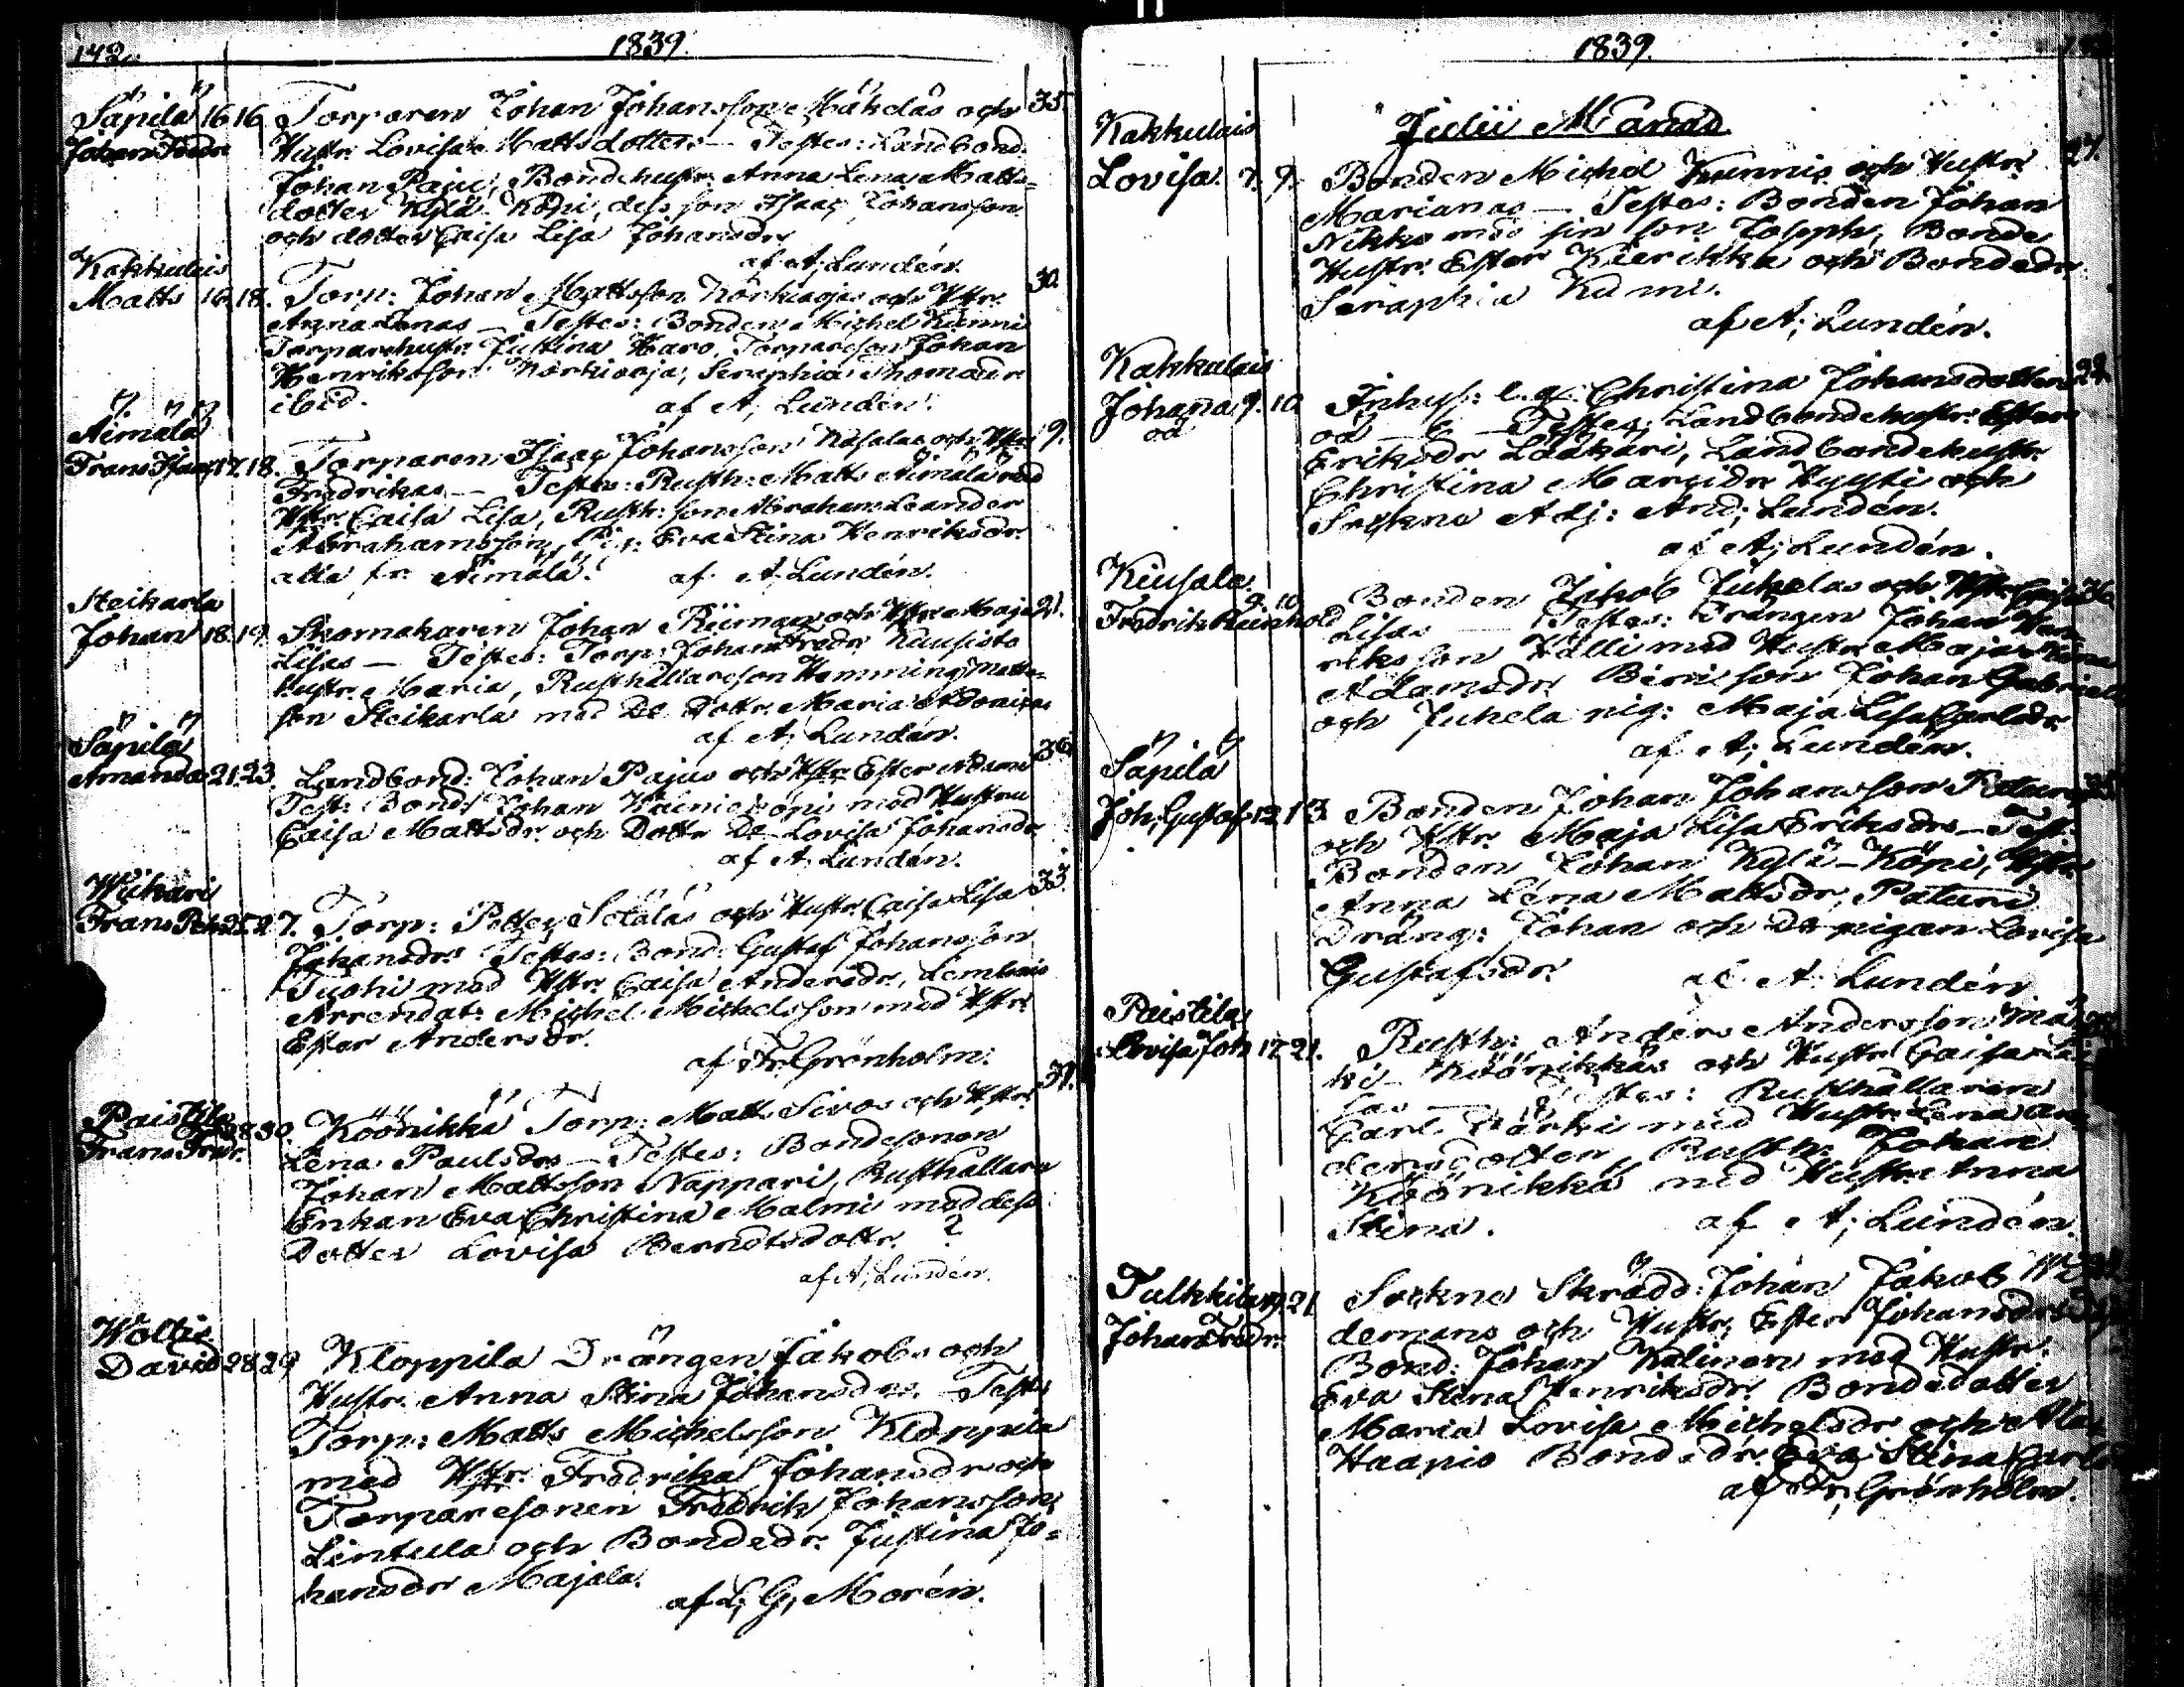 142.
1839.
Säpilä 16 16 Torparen Johan Johansson Mäkeläs och 35.
Johan Fredr. Hustr. Lovisa Mattsdotters — Testes: Landbond.
Johan Paju, Bondehustr. Anna Lena Matts=
dotter Kylä Köpi, dess son Isaac Johansson
och dotter Caisa Lisa Johansdr.
af A; Lundén.
Kakkulais
Matts 16. 18. Torp: Johan Mattsson Korkiaojas och Hstr. 30.
Anna Lenas — Testes: Bonden Michel Kunni
Torparehustr. Justina Haro, Torpareson Johan
Henriksson Korkiaoja, Seraphia Thomasdr.
ibid. af A; Lundén.
Äimälä
Frans Isaac 17. 18. Torparen Isaac Johansson Kasalas och Hstr. 9.
Fredrikas — Testes: Rusth: Matts Äimälä med
Hstr. Caisa Lisa, Rusth: son Abraham Leander
Abrahamsson, Pig: Eva Stina Henriksdr.
alla fr. Äimälä. af A; Lundén.
Steikarla
Johan 18. 19. Skomakaren Johan och Hstr. Maja 21.
Lisas — Testes: Torp: Johan Fredr. Kuusisto
Hustr. Maria, Rusthållareson Hemming Matts
son Steikarla med De Dottr. Maria
af A; Lundén.
Säpilä
Amanda 21. 23. Landbond: Johan Pajus och Hstr. Ester Adams 36.
Test: Bond: Johan med Hustru
Caisa Mattsdr. och Dottr. De Lovisa Johansdr.
af A; Lundén.
Wiikari
Frans Petter 25. 27. Torp: Petter Sëtäläs och Hustr. Caisa Lisa 33.
Johansdrs Testes: Bond: Gustaf Johansson
Tuohi med Hstr. Caisa Andersdr, Lembois
Arrendat: Michel Michelsson med Hstr.
Ester Andersdr.
af Fr. Grönholm.
Paistila
Frans Fredr. 28 30. Köönikkä Torp: Matts Sivos och Hstr. 37.
Lena Paulsdrs — Testes: Bondesonen
Johan Mattsson Nappari, Rusthållare
Enkan Eva Christina Malmi med dess
Dotter Lovisa Berndtsdottr. ?
af A; Lundén.
Woltis
David 28. 29 Kloppila Drängen Jakobs och
Hustr. Anna Stina Johansdrs. Testes
Torp: Matts Michelsson Kloppila
med Hstr. Fredrika Johansdr och
Torparesonen Fredrik Johansson
Lintula och Bondedr. Justina Jo=
hansdr Majala.
af L; G; Morén.
1839.
Julii Månad
Kakkulais
Lovisa. 7. 9. Bonden Michel Kunnis och Hustr. 27.
Marianas — Testes: Bonden Johan
Nikko med sin son Joseph, Bonde
Hustr. Ester Kierikka och Bondedr.
Seraphia Kumi.
af A; Lundén.
Kakkulais
Johana 9. 10 Inhys: l.g. Christina Johansdotters 22.
oä oä — Testes: Landbondehustr. Ester
Eriksdr. Lääkäri, Landbondehustr.
Christina Margidr Hyysti och
Sockne Adj: And; Lundén.
af A; Lundén.
Kiusala
Fredrik Reinhold 9. 10 Bonden Jakob Juhelas och Hstr. Caisa 36.
Lisas — Testes: Drängen Johan Hen
riksson Källi med Hustr. Maja Stina
Adamsdr. Birisson Johan Gabriels
och Juhela pig: Maja Lisa Carlsdr.
af A; Lundén.
Säpilä
Joh; Gustaf 12 13. Bonden Johan Johansson Paturis
och Hstr. Maja Lisa Eriksdrs — Test:
Bonden Johan Kylä-Köpi, Hstr.
Anna Lena Mattsdr, Paturi
Dräng: Johan och De pigan Lovisa
Gustafsdr. af A. Lundén
Paistila
Lovisa Joh 17 21. Rusth: Anders Andersson Mä
ki Köönikkäs och Hustr. Caisa Li
sas — Testes: Rusthållaren
Carl Kärki med Hustr. Lena An
dersdotter, Rusth: Johan
Köönikkä med Hustr. Anna
Stina. af A; Lundén.
Tulkkila 19 21 Sockne Skrädd: Johan Jakob
Johan Fredr. demans och Hustr. Ester Johansdrs
Bond: Johan Kalinen med Hustr.
Eva Stina Henriksdr. Bondedotter
Maria Lovisa Michelsdr. och
Haapio Bondedr. Eva Stina Carls
af Fr; Grönholm.